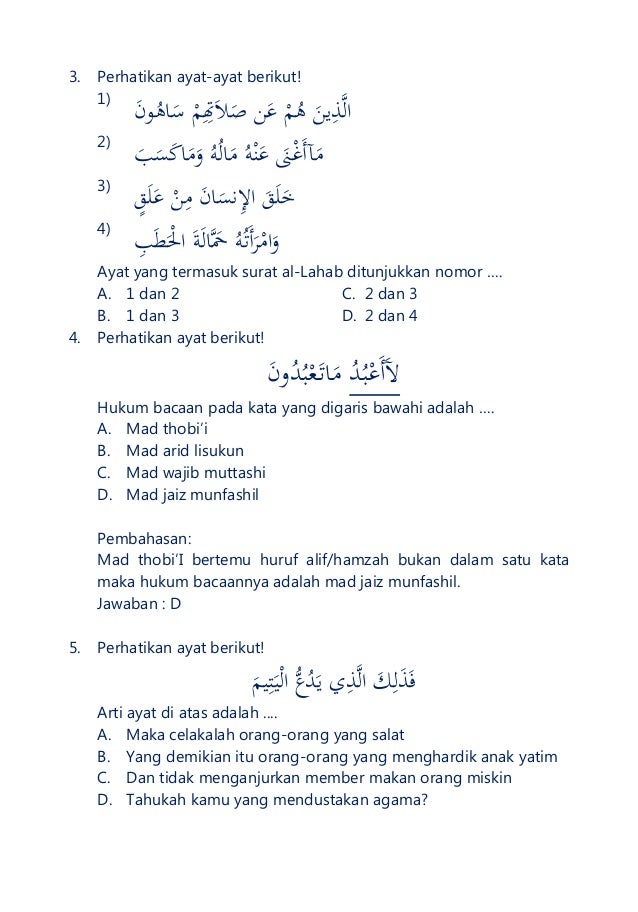 3. Perhatikan ayat-ayat berikut!
1) الَّذِينَ هُمْ عَن صَلاَتِهِمْ سَاهُونَ
2) مَآأَغْنَىٰ عَنْهُ مَالُهُ وَمَاكَسَبَ
3) خَلَقَ الإِنسَانَ مِنْ عَلَقٍ
4) وَامْرَأَتُهُ حَمَّالَةَ الْحَطَبِ
Ayat yang termasuk surat al-Lahab ditunjukkan nomor ....
A. 1 dan 2 C. 2 dan 3
B. 1 dan 3 D. 2 dan 4
4. Perhatikan ayat berikut!
لَآأَعْبُدُ مَاتَعْبُدُونَ
Hukum bacaan pada kata yang digaris bawahi adalah ....
A. Mad thobi’i
B. Mad arid lisukun
C. Mad wajib muttashi
D. Mad jaiz munfashil
Pembahasan:
Mad thobi’I bertemu huruf alif/hamzah bukan dalam satu kata
maka hukum bacaannya adalah mad jaiz munfashil.
Jawaban : D
5. Perhatikan ayat berikut!
فَذَلِكَ الَّذِي يَدُعُّ الْيَتِيمَ
Arti ayat di atas adalah ....
A. Maka celakalah orang-orang yang salat
B. Yang demikian itu orang-orang yang menghardik anak yatim
C. Dan tidak menganjurkan member makan orang miskin
D. Tahukah kamu yang mendustakan agama?